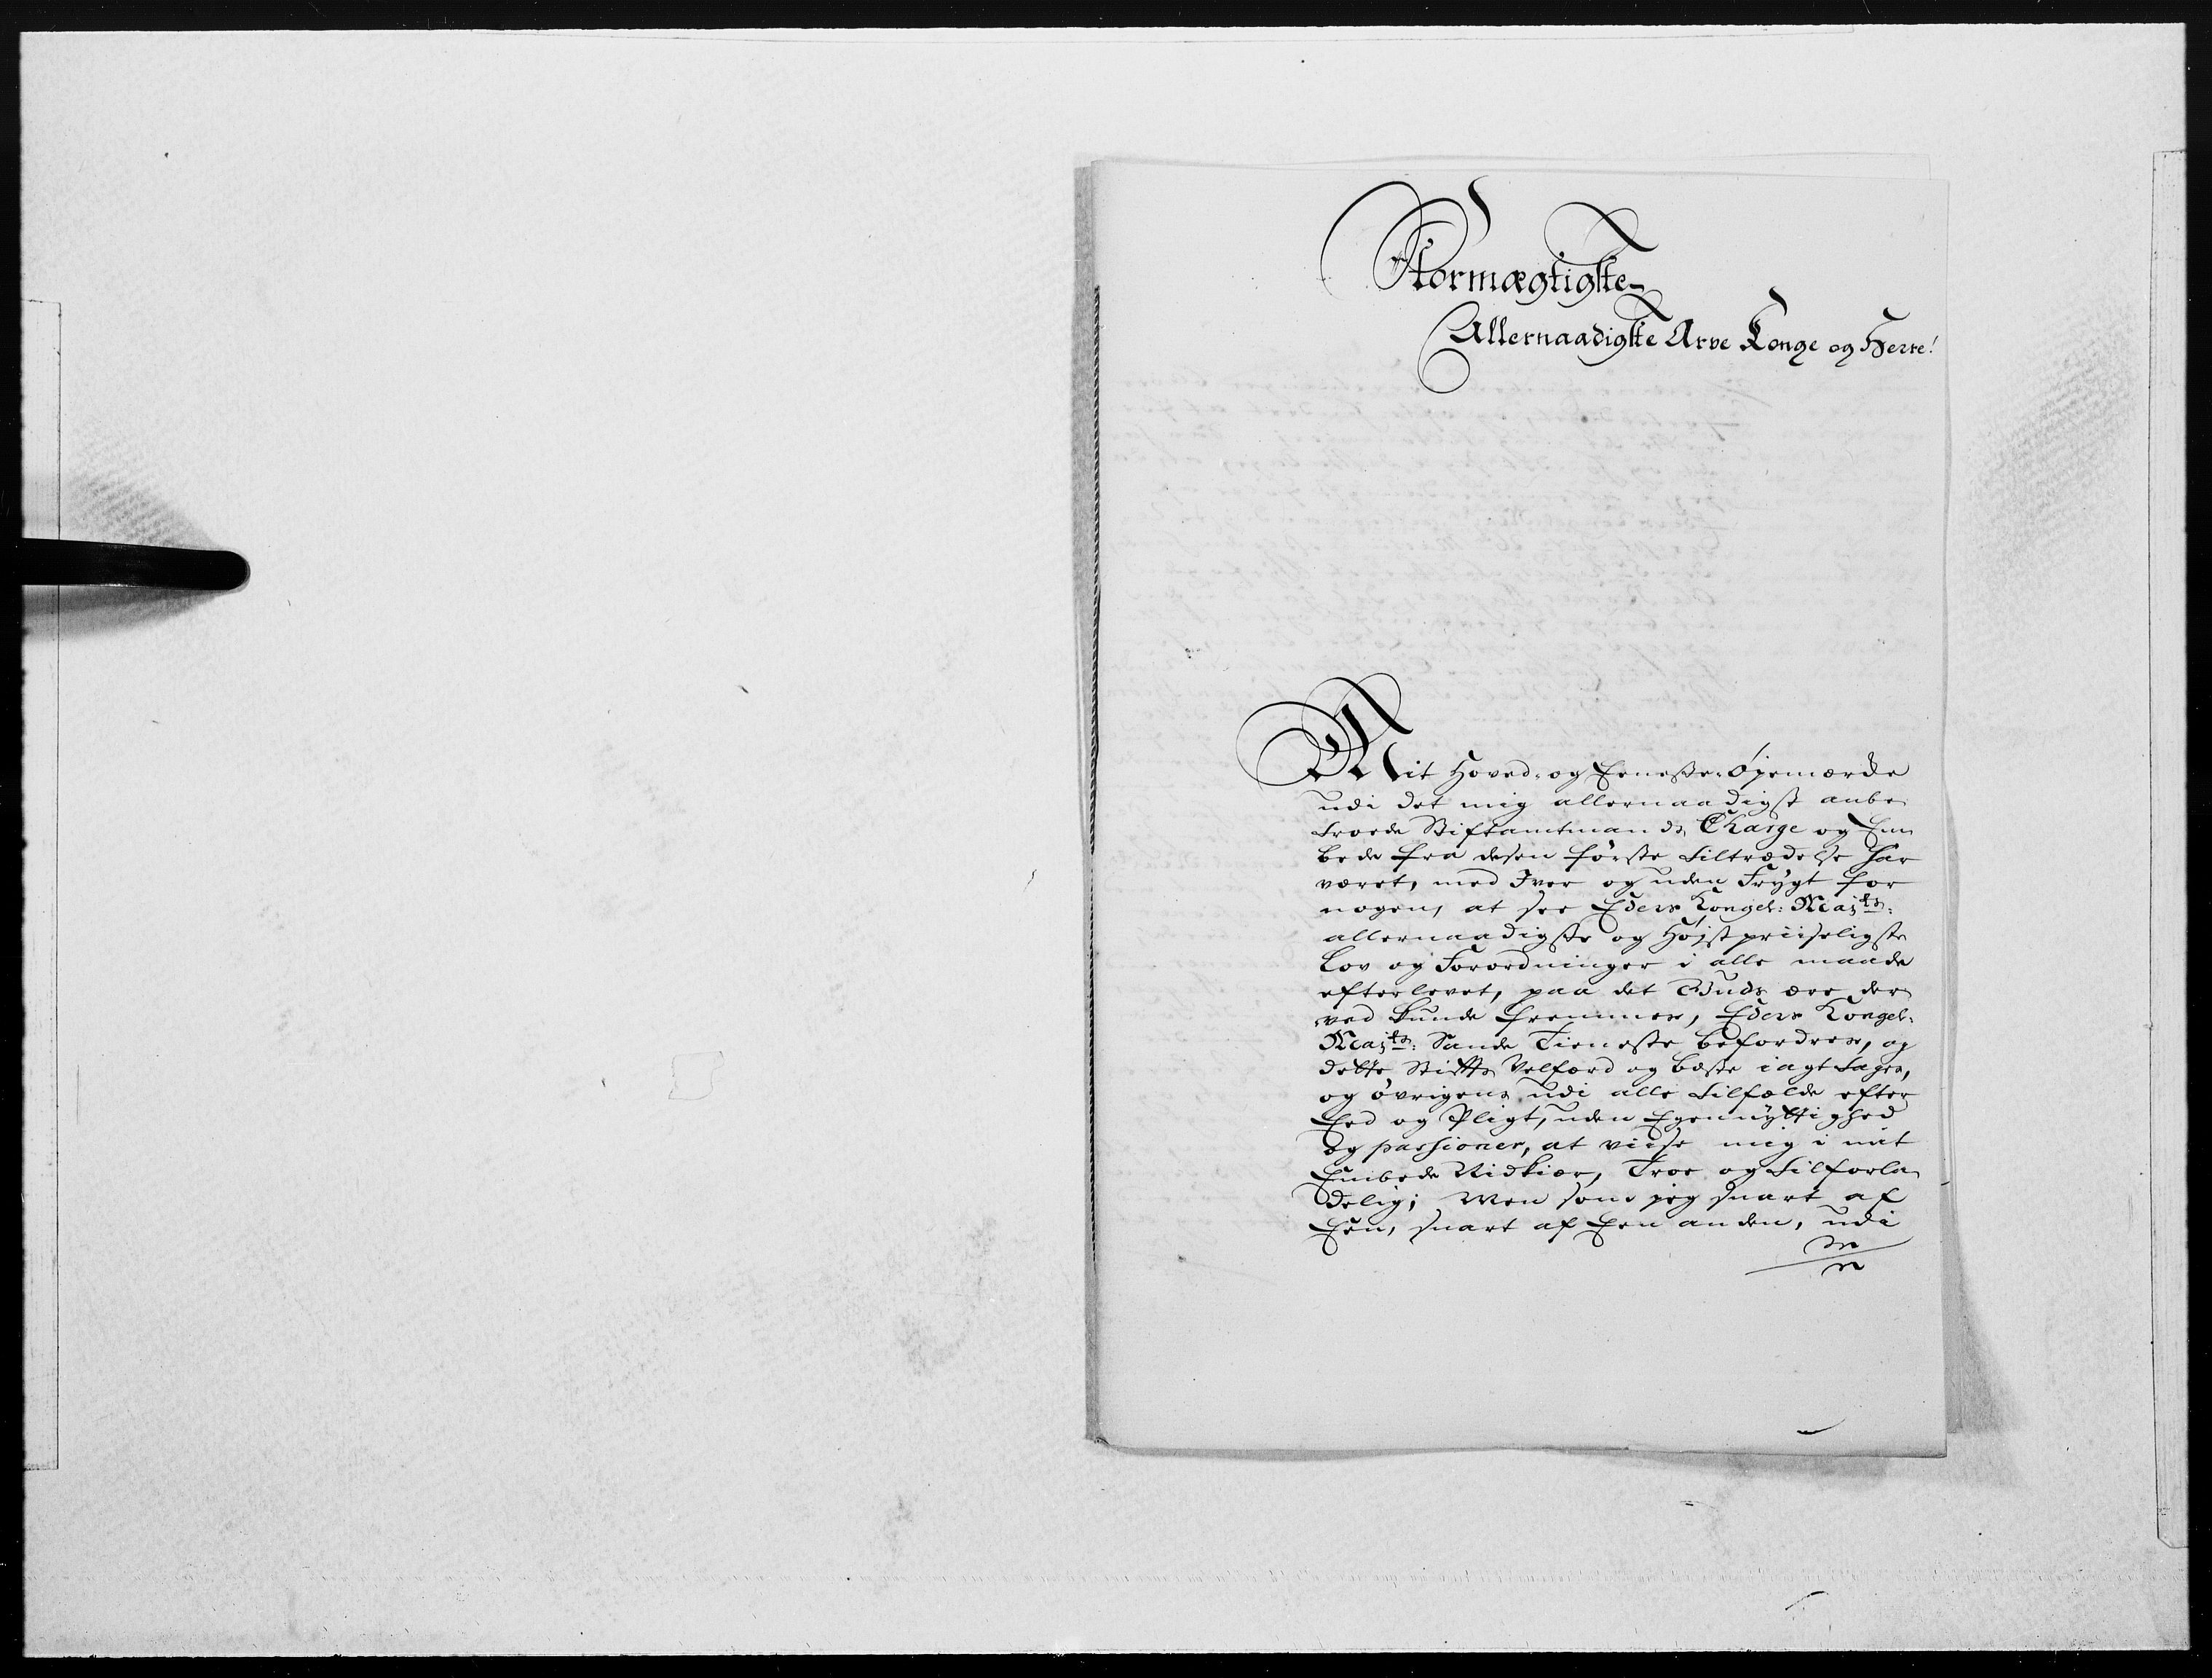 Stormægtigste-
Allernaadigste Arve Konge og Herre!
Mit Hoved- og Eeneste-Øjemærde
udi det mig allernaadigst anbe-
troede Stiftamtmands Charge og Em-
bede fra desen første tiltrædelse har
været, med Iver og uden Frygt for
nogen, at see Eders Kongel: Majts:
allernaadigste og Højstpriiseligste
Lov og Forordninger i alle maade
efterlevet, paa det Guds ære der-
ved kunde fremmes, Eders Kongel:
Majts: Sande Tieneste befordres, og
dette Stifts Velfærd og beste iagttages,
og øvrigens udi alle tilfælde efter
Eed og Pligt, uden Egennyttighed
og passioner, at viise mig i mit
Embede Nidkiær, Troe og tilforla-
delig; Men som jeg snart af
Een, snart af Een anden, udi